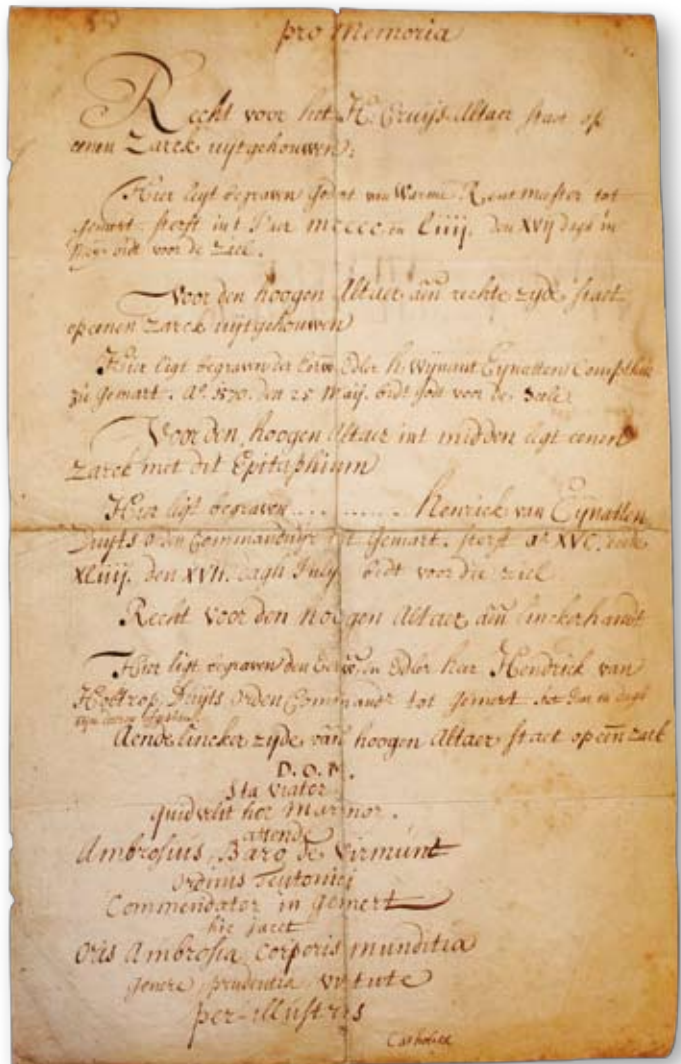 pro Memoria
Recht voor het H. Cruijs Altaer staet op
eenen Zarck uijtgehouwen:
Hier ligt begraven Godart van Warme Rentmeester tot
Gemert sterft int Jaer mcccc en Liiij. den XVij dagh in
bidt voor de ziel.
Voor den hoogen Altaer aen rechte zyde staet
op eenen Zarck uijtgehouwen
Hier ligt begraven der Edler H. Wijnant Eynatten
zu Gemart. Aº. 1570. den 25 Maij. bidt Godt voor de Seele
Voor den hoogen Altaer int midden ligt eenen
Zarck met dit Epitaphium
Hier ligt begraven .... ........ Henrick van Eijnatten
Duyts orden Commandeur tot Gemart. sterft aº XVC. ende
XLiiij. den XVII. dagh July bidt voor die ziel
Recht voor den hoogen Altaer aen linckerhandt
Hier ligt begraven den Edler her Hendrick van
Holtrop Duyts Orden Command.r tot Gemert
Aen de lincker zijde van hoogen Altaer staet op een zark
D. O. M.
Sta viator
quid velit hoc Marmor.
attende
Ambrosius Baro de Virmunt
Ordinis Teutonici
Commendator in Gemert
hic jacet
Oris Ambrosia Corporis munditia
genere prudentia virtute
per-illustris